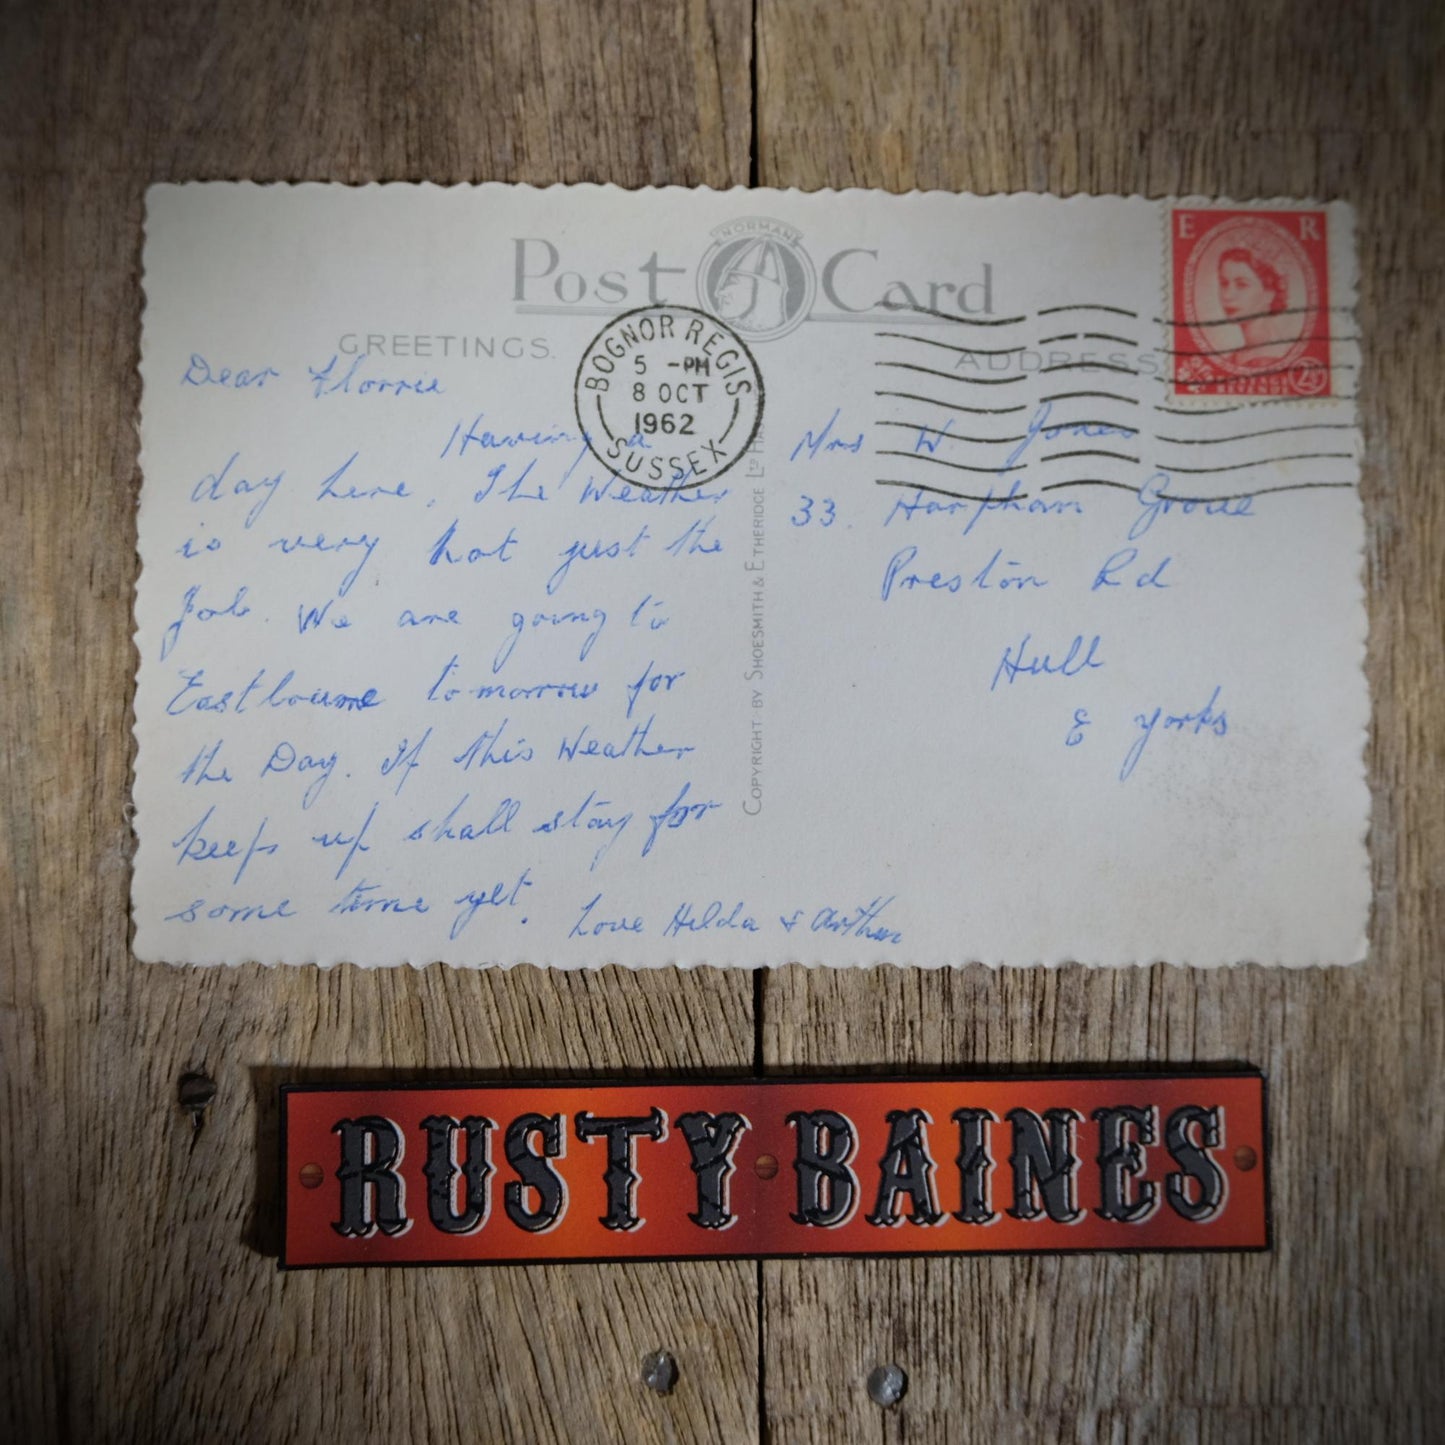 NORMAN
Post Card
GREETINGS.
ADDRESS
E R
2½
BOGNOR REGIS
5 -PM
8 OCT
1962
SUSSEX
Dear Florrie
Having a
day here. The Weather
is very hot just the
Job. We are going to
Eastbourne tomorrow for
the Day. If this Weather
keeps up shall stay for
some time yet.
Love Hilda & Arthur
COPYRIGHT BY SHOESMITH & ETHERIDGE LTD HAS
Mrs W. Jones
33. Harpham Grove
Preston Rd
Hull
E Yorks
RUSTY BAINES